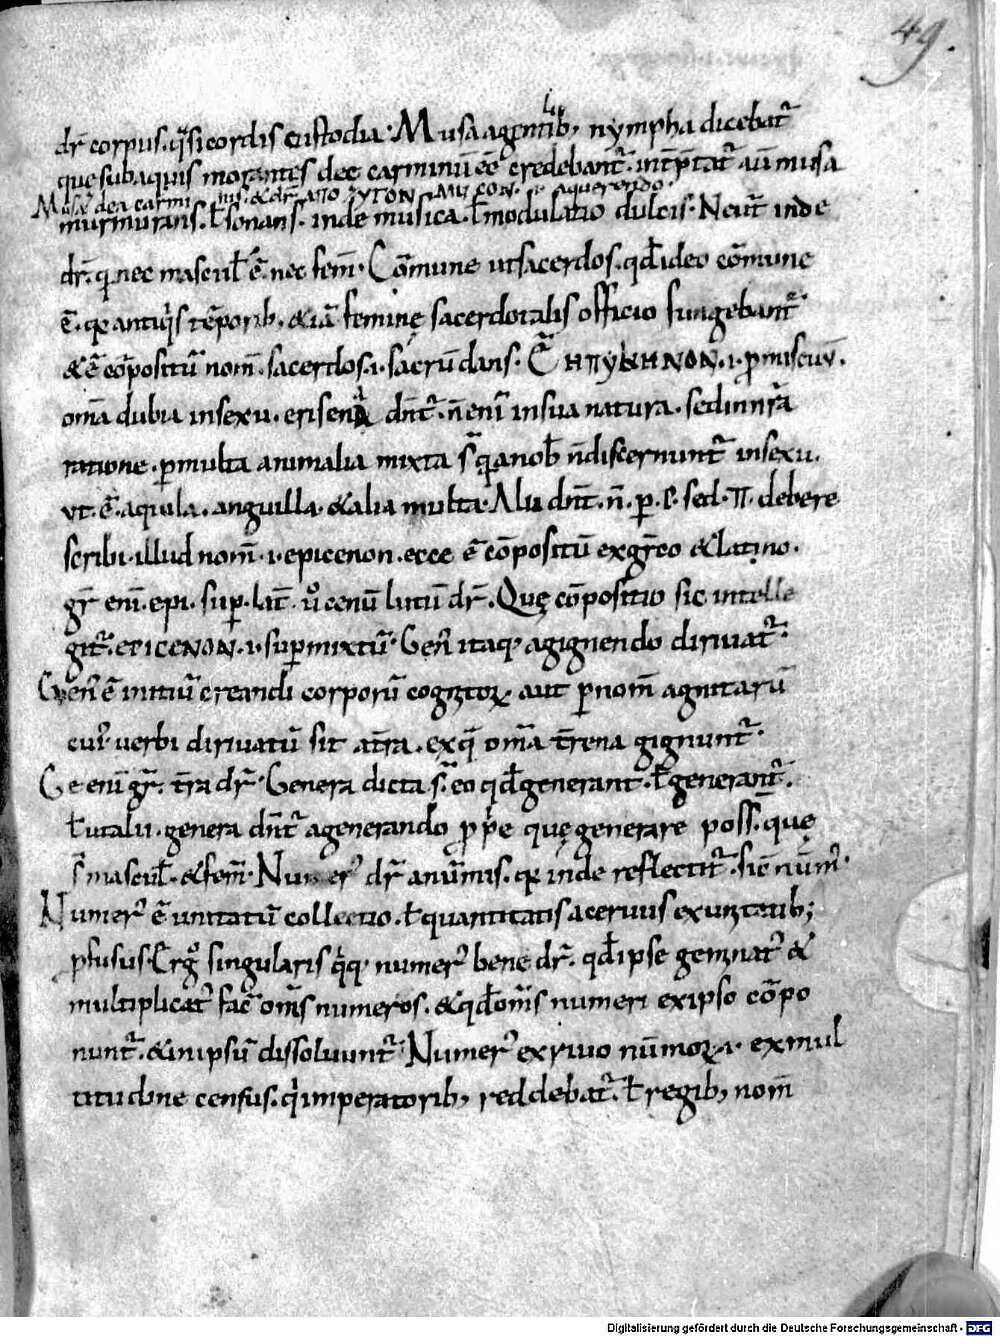 49.
dr̄ corpus. q̄si cordis custodia. Musa agentib; nympha dicebat̄
que sub aquis morantes deę carminū eē credebant̄. int̄p̄tat̄ aū musa
Musa dea carmi nis. & dr̄ aquerendo.
murmurans. ł sonans. inde musica. ł modulatio dulcis. Neut̄ inde
dr̄. q nec mascul̄ ē nec fem̄. Cōmune ut sacerdos. qđ ideo cōmune
ē. qr antiq̄s tēporib; & iā feminę sacerdotalis officio fungebant̄
& ē cōpositū nom̄. sacerdos. i. sacrū dans. i. p̄miscuū.
om̄a dubia in sexu. dnt̄. n̄ enī in sua natura. sed in n̄rā
ratione. p multa animalia mixta s̄ q̄ a nob̄ n̄ discernunt̄ in sexu.
ut. ē. aquila. anguilla. & alia multa. Alii dnt̄. n̄. p. ſ. sed. π. debere
scribi illud nom̄. i. epicenon. ecce ē cōpositū ex gr̄co & latino.
gr̄ enī. epi. sup. lat̄. ů cenū lutū dr̄. Quę cōpositio sic intelle
git̄. EPICENON. i. sup mixtū. Gen̄ itaq; a gignendo dirivat̄.
Gen̄ ē initiū creandi corporū aut p nom̄ agnitarū
cui; verbi dirivatū sit a t̄ra. ex q̄ om̄a t̄rena gignunt̄.
Ge enī gr̄. t̄ra dr̄. Genera dicta s̄ eo qđ generant. ł generant̄.
ł ut alii. genera dnt̄ a generando p̄pe quę generare poss̄. quę
s̄ mascul̄. & fem̄. Numer; dr̄ a nūmis. qr inde reflectit̄. sic nūm;
Numer; ē unitatū collectio. ł quantitatis acervus ex unitatib;
pfusus. Ergo singularis q̄q; numer; bene dr̄. qđ ipse geminat̄ &
multiplicat̄ fac̄ om̄s numeros. & qđ om̄s numeri ex ipso cōpo
nunt̄. & in ipsū dissolvunt̄. Numer; ex rivo nūmorꝝ. ex mul
titudine census. q̄ imperatorib; reddebat̄. ł regib; nom̄
Digitalisierung gefördert durch die Deutsche Forschungsgemeinschaft - DFG